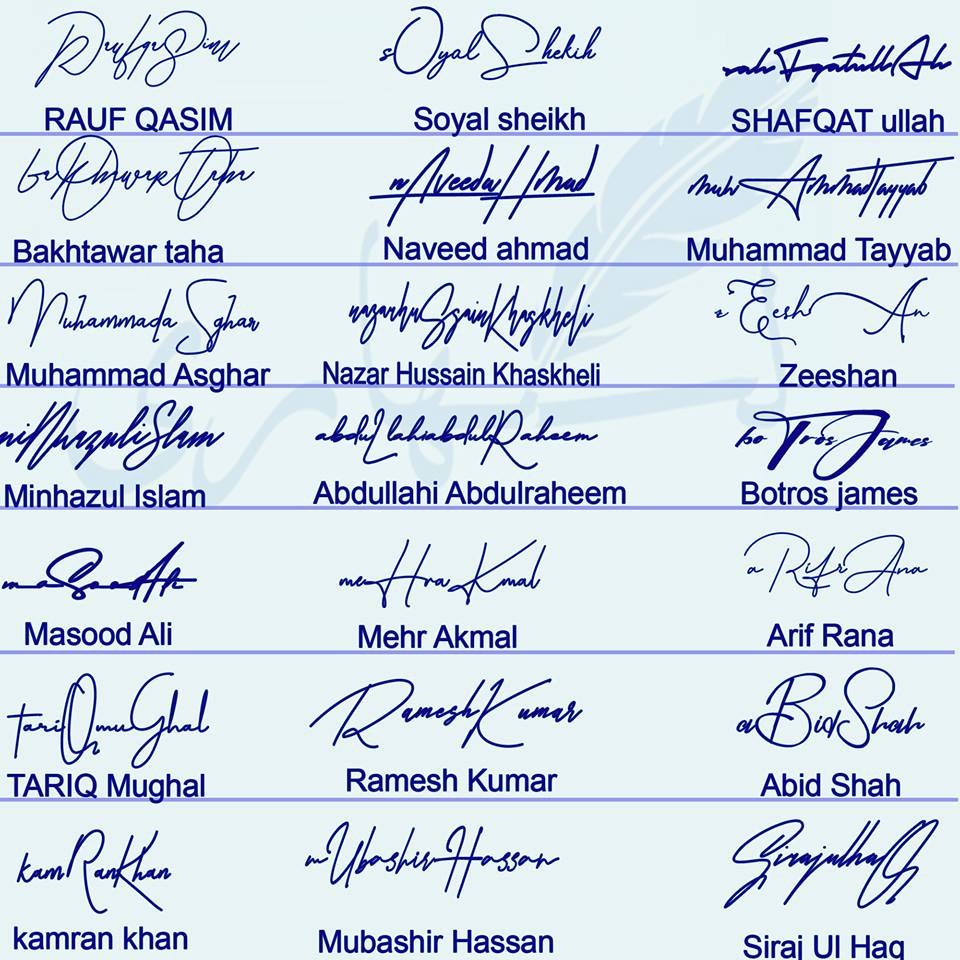 Rauf qaSim
sOyal Shekih
sah FqatullAh
RAUF QASIM
Soyal sheikh
SHAFQAT ullah
baKhtawarTtaha
nAveedaHmad
muhAmmadTayyab
Bakhtawar taha
Naveed ahmad
Muhammad Tayyab
Muhammada Sghar
nazarhuSsainKhaskheli
zEesh An
Muhammad Asghar
Nazar Hussain Khaskheli
Zeeshan
miNhazuliSlam
abduLlahiabdulRaheem
boTrosJames
Minhazul Islam
Abdullahi Abdulraheem
Botros james
maSoodAli
meHraKmal
aRifrAna
Masood Ali
Mehr Akmal
Arif Rana
tariQmuGhal
RameshKumar
aBidShah
TARIQ Mughal
Ramesh Kumar
Abid Shah
kamRanKhan
mUbashirHassan
SirajulhaQ
kamran khan
Mubashir Hassan
Siraj Ul Haq